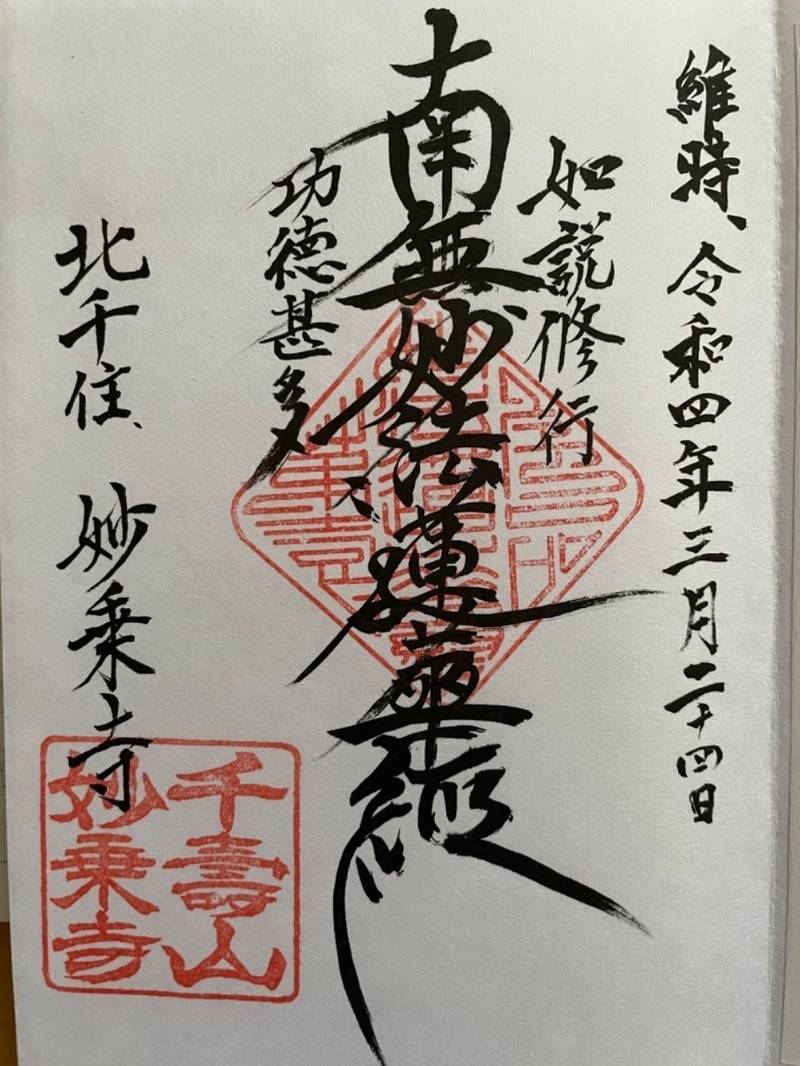 維時、令和四年三月二十四日
如説修行
南無妙法蓮華経
功徳甚多
北千住、妙乗寺
千壽山
妙乗寺